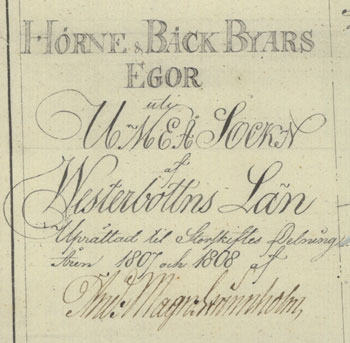 HÖRNE & BÄCK BYARS
EGOR
uti
UMEÅ SOCKN
af
Westerbottns Län
Uprättad til Storskiftes Delning
åren 1807 och 1808 af
And. Magn. Strömholm,